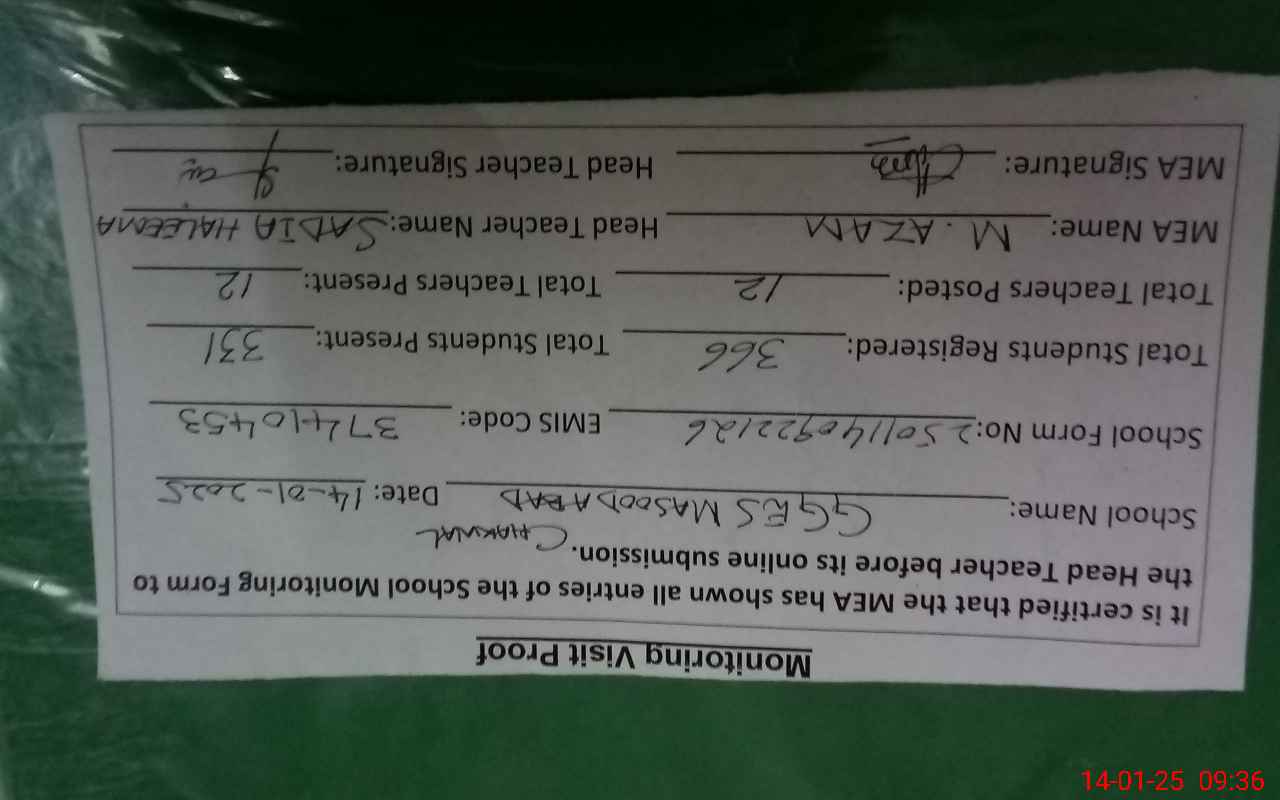 Monitoring Visit Proof
It is certified that the MEA has shown all entries of the School Monitoring Form to
the Head Teacher before its online submission. CHAKWAL
School Name: GGES MASOODABAD Date: 14-01-2025
School Form No: 2501140922126 EMIS Code: 37410453
Total Students Registered: 366 Total Students Present: 331
Total Teachers Posted: 12 Total Teachers Present: 12
MEA Name: M. AZAM Head Teacher Name: SADIA HALEEMA
MEA Signature: Head Teacher Signature:
14-01-25 09:36